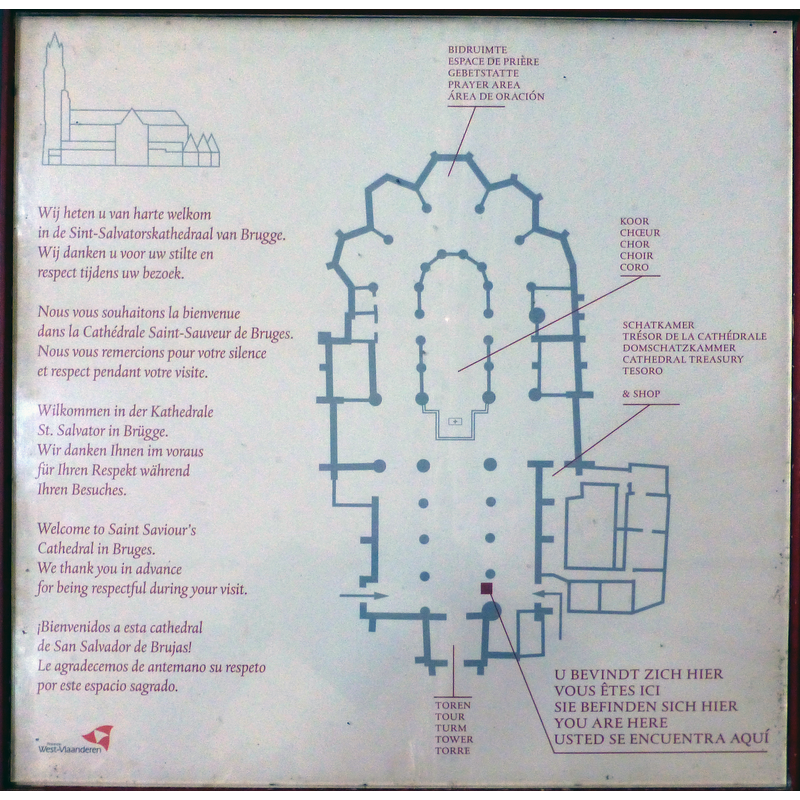 BIDRUIMTE
ESPACE DE PRIÈRE
GEBETSTATTE
PRAYER AREA
ÁREA DE ORACIÓN
Wij heten u van harte welkom
in de Sint-Salvatorskathedraal van Brugge.
Wij danken u voor uw stilte en
respect tijdens uw bezoek.
Nous vous souhaitons la bienvenue
dans la Cathédrale Saint-Sauveur de Bruges.
Nous vous remercions pour votre silence
et respect pendant votre visite.
Wilkommen in der Kathedrale
St. Salvator in Brügge.
Wir danken Ihnen im voraus
für Ihren Respekt während
Ihren Besuches.
Welcome to Saint Saviour's
Cathedral in Bruges.
We thank you in advance
for being respectful during your visit.
¡Bienvenidos a esta cathedral
de San Salvador de Brujas!
Le agradecemos de antemano su respeto
por este espacio sagrado.
KOOR
CHŒUR
CHOR
CHOIR
CORO
SCHATKAMER
TRÉSOR DE LA CATHÉDRALE
DOMSCHATZKAMMER
CATHEDRAL TREASURY
TESORO
& SHOP
TOREN
TOUR
TURM
TOWER
TORRE
U BEVINDT ZICH HIER
VOUS ÊTES ICI
SIE BEFINDEN SICH HIER
YOU ARE HERE
USTED SE ENCUENTRA AQUÍ
West-Vlaanderen